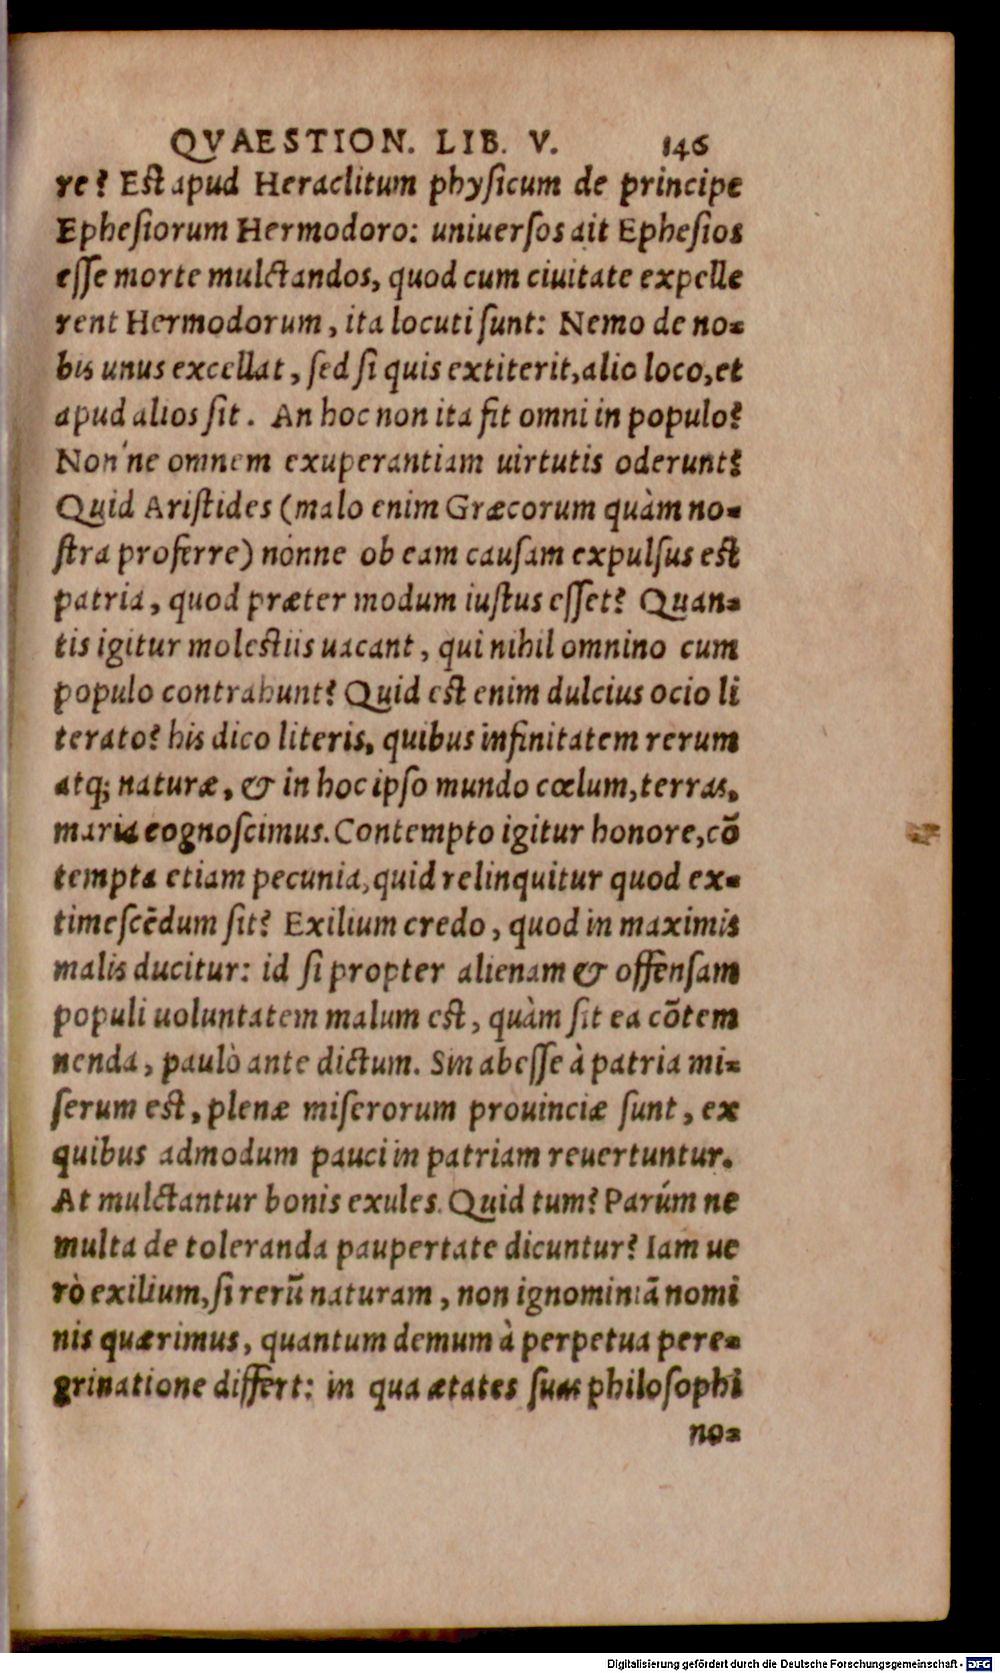 QVAESTION. LIB. V. 146
re? Est apud Heraclitum phyſicum de principe
Epheſiorum Hermodoro: uniuerſos ait Epheſios
eſſe morte mulctandos, quod cum ciuitate expelle
rent Hermodorum, ita locuti ſunt: Nemo de no-
bis unus excellat, ſed ſi quis extiterit, alio loco, et
apud alios ſit. An hoc non ita fit omni in populo?
Non'ne omnem exuperantiam uirtutis oderunt?
Quid Ariſtides (malo enim Græcorum quàm no-
ſtra proferre) nónne ob eam cauſam expulſus est
patria, quod præter modum iuſtus eſſet? Quan-
tis igitur molestiis uacant, qui nihil omnino cum
populo contrahunt? Quid est enim dulcius ocio li
terato? his dico literis, quibus infinitatem rerum
atq; naturæ, & in hoc ipſo mundo cœlum, terras,
maria cognoſcimus. Contempto igitur honore, cō
tempta etiam pecunia, quid relinquitur quod ex-
timeſcēdum ſit? Exilium credo, quod in maximis
malis ducitur: id ſi propter alienam & offenſam
populi uoluntatem malum est, quàm ſit ea cōtem
nenda, paulò ante dictum. Sin abeſſe à patria mi-
ſerum est, plenæ miſerorum prouinciæ ſunt, ex
quibus admodum pauci in patriam reuertuntur.
At mulctantur bonis exules. Quid tum? Parúm ne
multa de toleranda paupertate dicuntur? Iam ue
rò exilium, ſi rerū naturam, non ignominiā nomi
nis quærimus, quantum demum à perpetua pere-
grinatione differt: in qua ætates ſuas philoſophi
no-
Digitalisierung gefördert durch die Deutsche Forschungsgemeinschaft - DFG